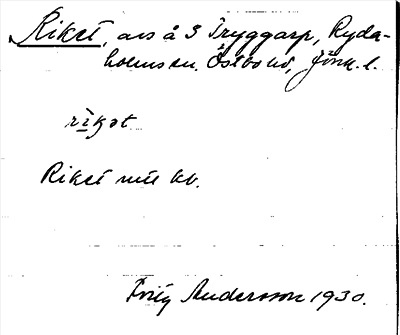 Riket, avs å 3 Tryggarp, Ryda-
holms sn. Östbo hd, Jönk. l.
rìkət
Rikst nuv kb.
Fritz Andersson 1930.